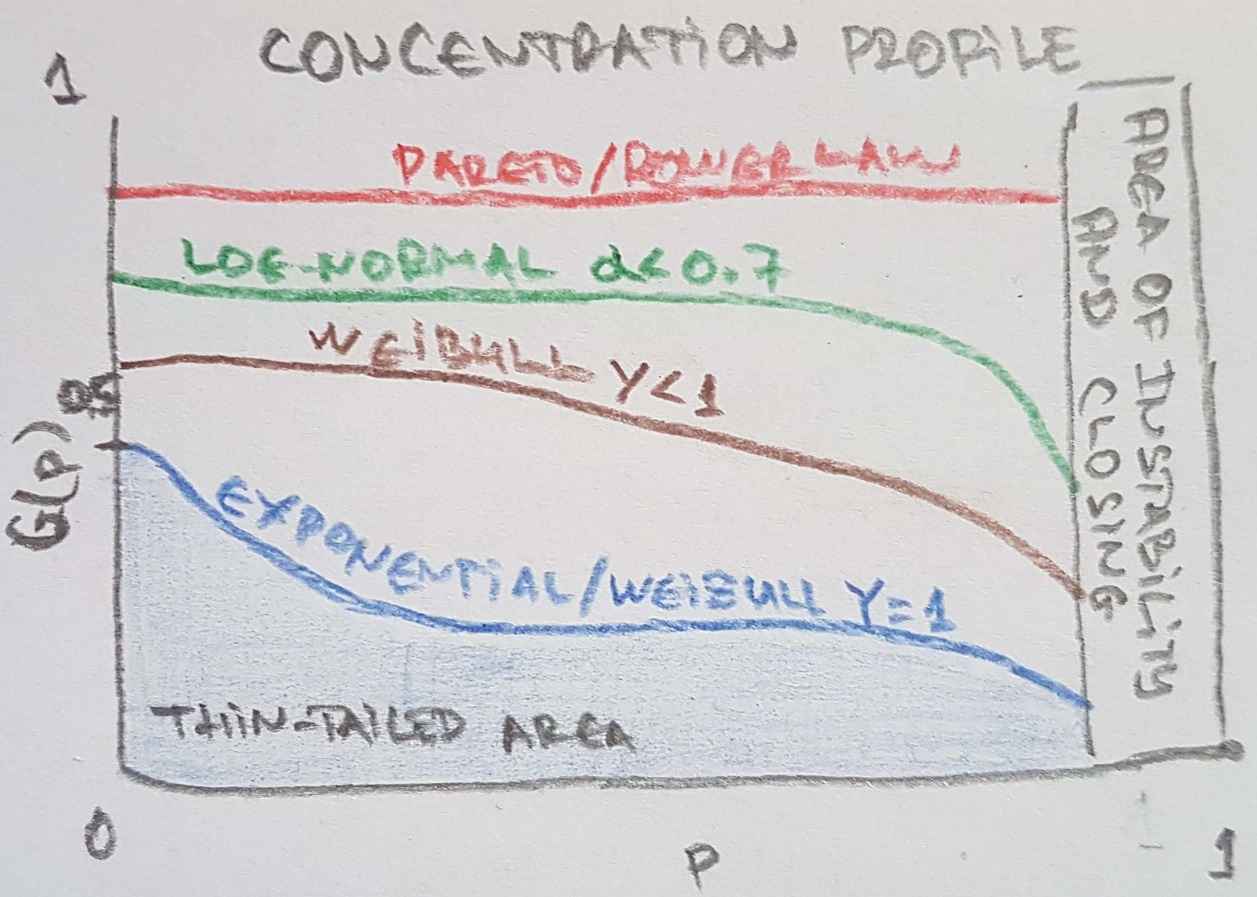 CONCENTRATION PROFILE
1
PARETO/POWER LAW
LOG-NORMAL α<0.7
WEIBULL γ<1
0.5
G(p)
EXPONENTIAL/WEIBULL γ=1
THIN-TAILED AREA
AREA OF INSTABILITY
AND CLOSING
0
P
1